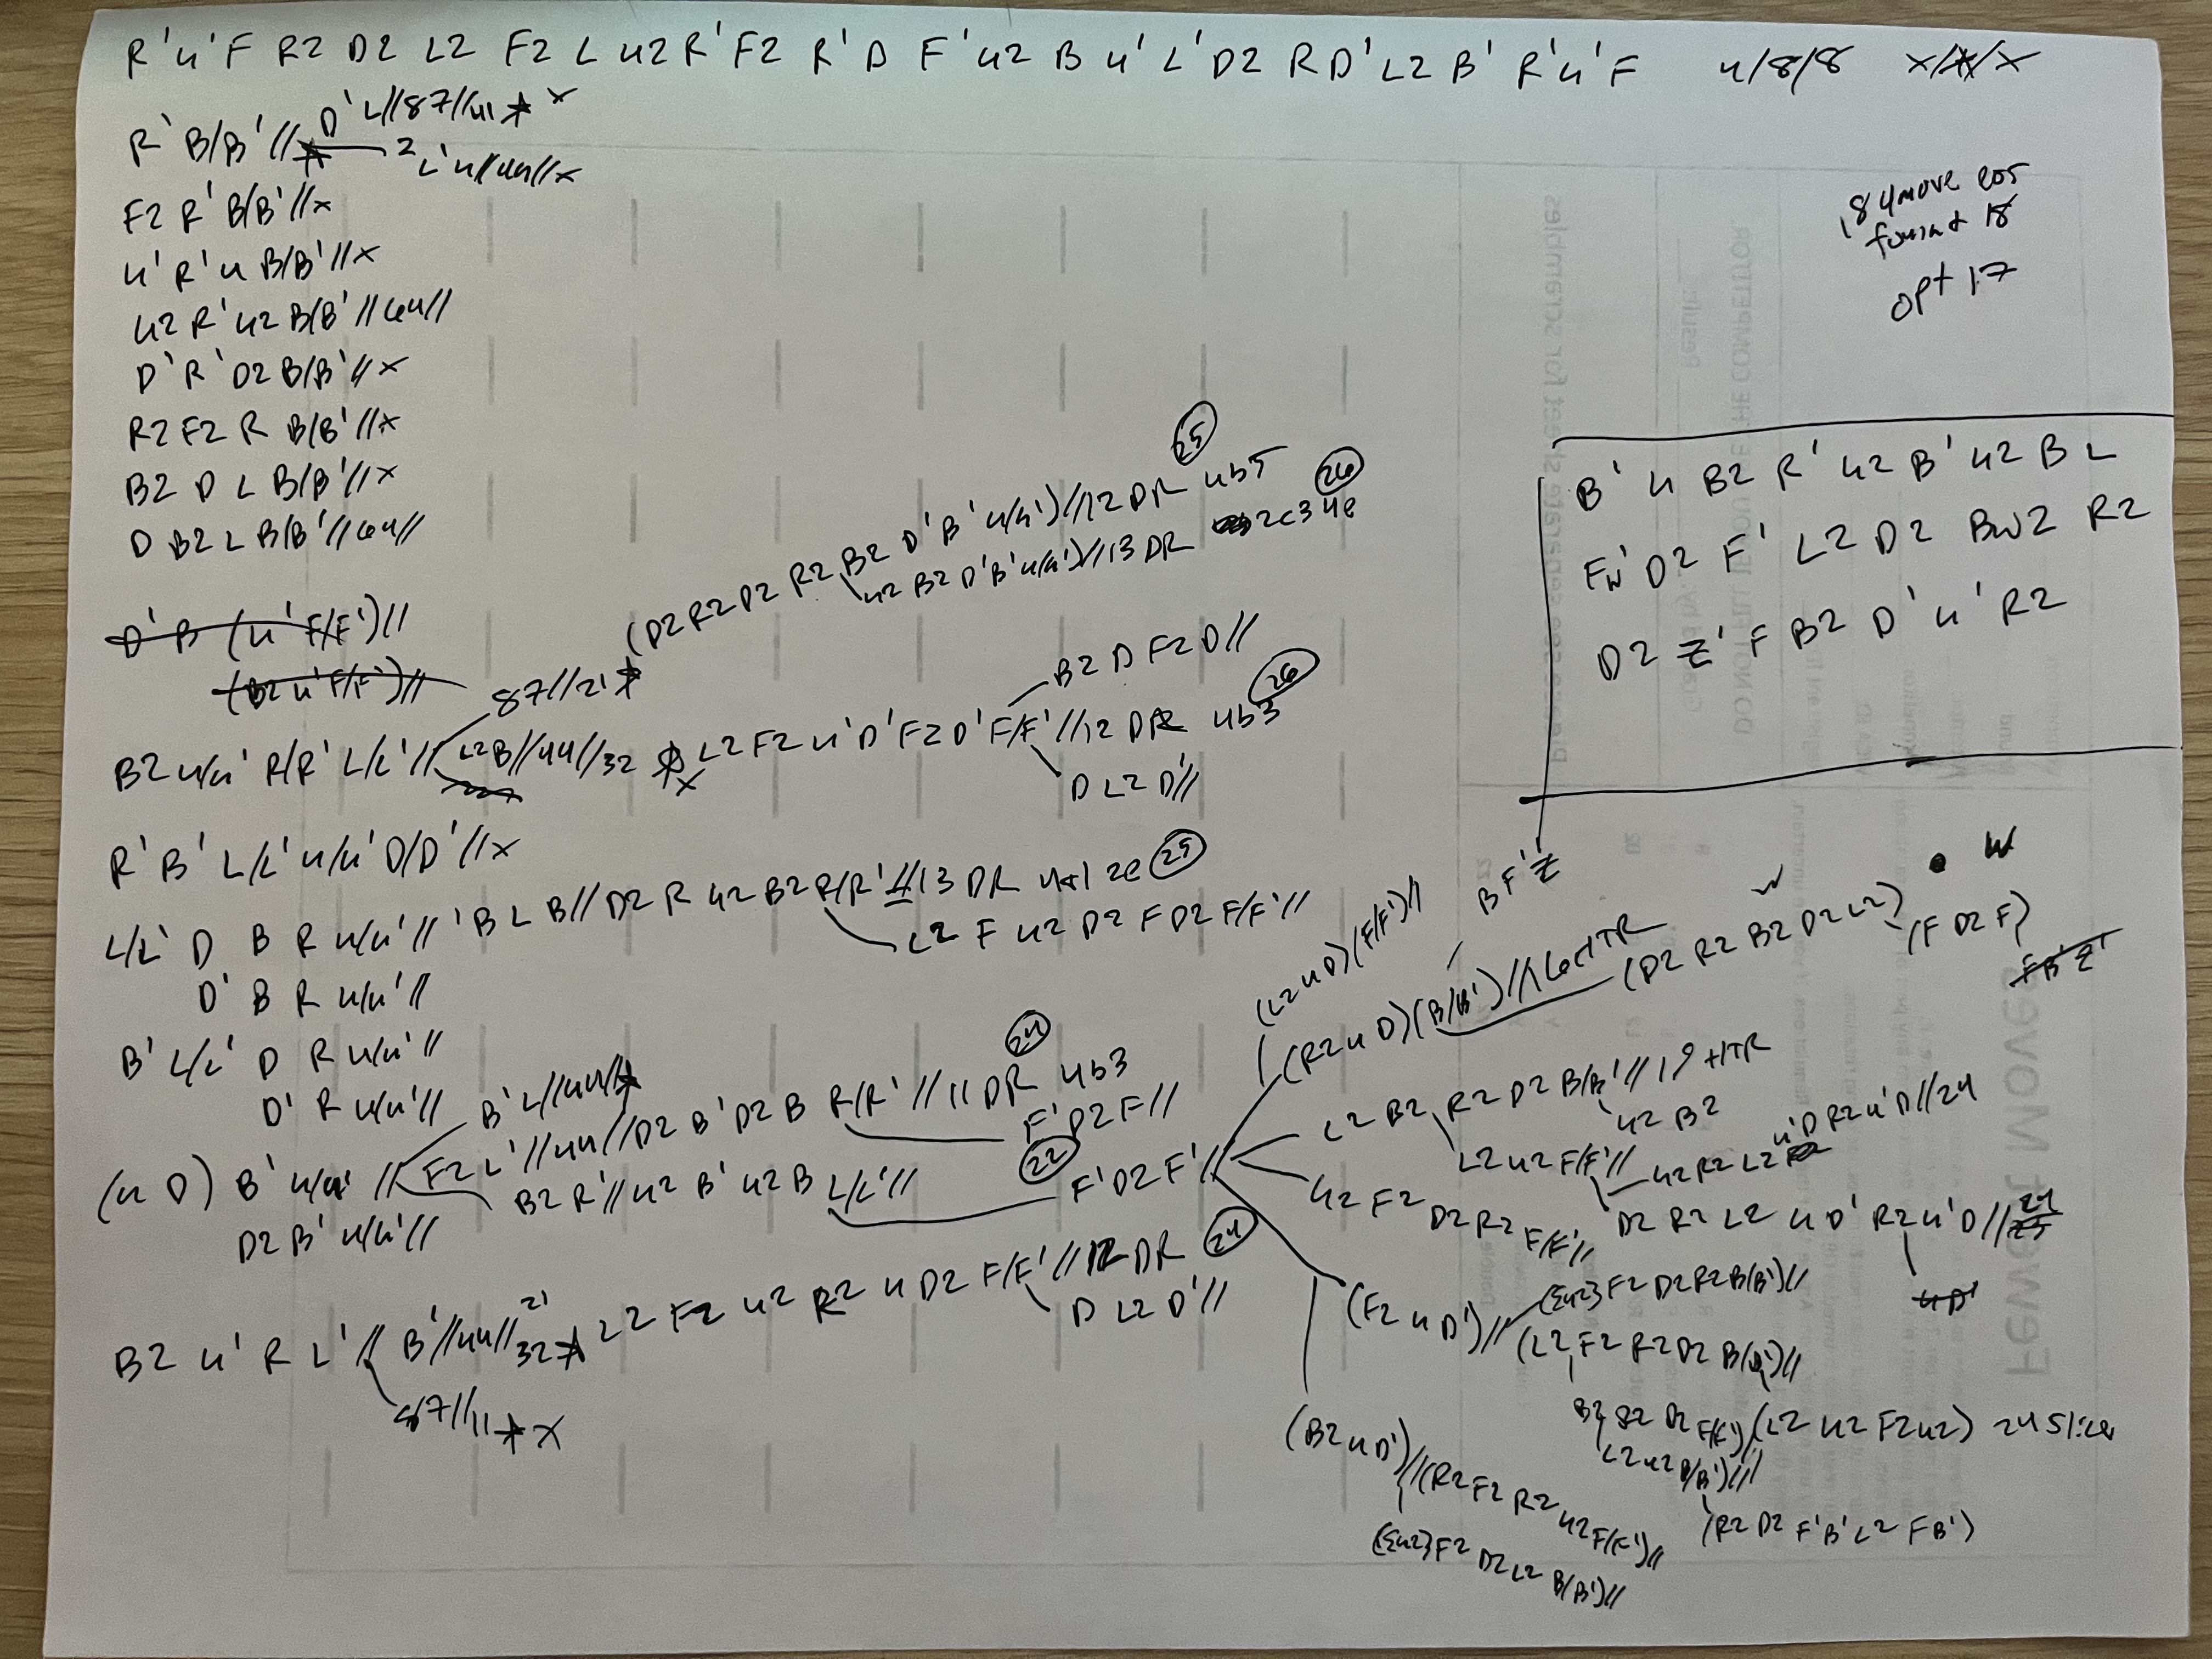 R' U' F R2 D2 L2 F2 L U2 R' F2 R' D F' U2 B U' L' D2 R D' L2 B' R' U' F 4/8/8 x/x/x
R' B/B' // D' L//87//41 x
2 L' U//44//x
F2 R' B/B' //x
U' R' U B/B' //x
U2 R' U2 B/B' //64//
D' R' D2 B/B' //x
R2 F2 R B/B' //x
B2 D L B/B' //x
D B2 L B/B' //64//
18 4move eos
found 18
opt 17
B' U B2 R' U2 B' U2 B L
Fw' D2 F' L2 D2 Bw2 R2
D2 Z' F B2 D' U' R2
D' B (U' F/F') //
(B2 U' F/F') //
(D2 R2 D2 R2 B2 D' B' U/U') //12 DR 4b5 25
U2 B2 D' B' U/U') //13 DR 2c3 4e 26
87//21
B2 U/U' R/R' L/L' // L2 B//44//32 x L2 F2 U' D' F2 D' F/F' //12 DR 4b3 26
B2 D F2 D//
D L2 D' //
R' B' L/L' U/U' D/D' //x
L/L' D B R U/U' // 'B L B// D2 R U2 B2 R/R' //13 DR 4a1 2e 25
L2 F U2 D2 F D2 F/F' //
D' B R U/U' //
B' L/L' D R U/U' //
D' R U/U' //
B' L//44//
(U D) B' U/U' // F2 L' //44// D2 B' D2 B R/R' //11 DR 4b3 24
F' D2 F //
B2 R' // U2 B' U2 B L/L' // F' D2 F' // 22
D2 B' U/U' //
B2 U' R L' // B' //44//32 21 L2 F2 U2 R2 U D2 F/F' //12 DR 24
D L2 D' //
87//11 x
B F' Z
(L2 U D) (F/F') //
(R2 U D) (B/B') //16 HTR (D2 R2 B2 D2 L2) W
(F D2 F)
F B' Z'
L2 B2 R2 D2 B/B' //19 HTR
U2 B2
L2 U2 F/F' // U2 R2 L2 U' D R2 U' D//24
U2 F2 D2 R2 F/F' // D2 R2 L2 U D' R2 U' D// 24
U D'
(F2 U D') // ({U2} F2 D2 R2 B/B') //
(L2 F2 R2 D2 B/B') //
B2 D2 F/F') (L2 U2 F2 U2) 24 slice
L2 U2 B/B') //
(R2 D2 F' B' L2 F B')
(B2 U D') // (R2 F2 R2 U2 F/F') //
({U2} F2 D2 L2 B/B') //
Fewest Moves